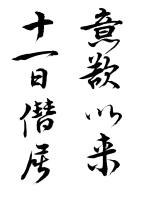 意欲以来
十一日僭居